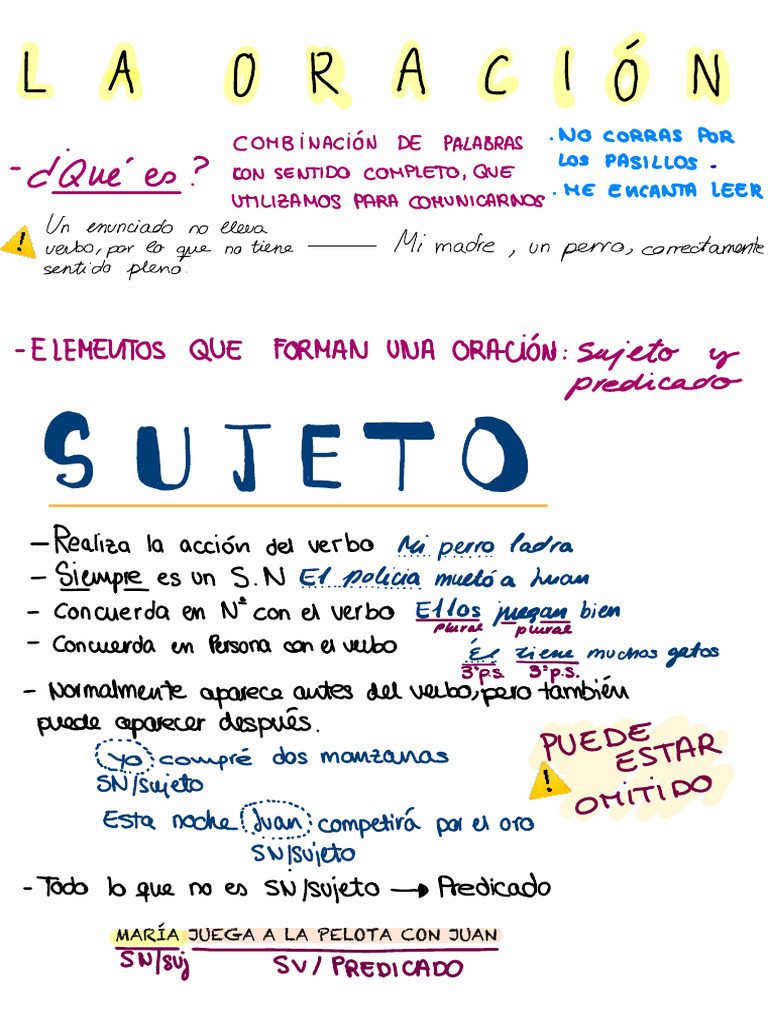 LA ORACIÓN
- ¿Qué es?
COMBINACIÓN DE PALABRAS
CON SENTIDO COMPLETO, QUE
UTILIZAMOS PARA COMUNICARNOS
. NO CORRAS POR
LOS PASILLOS.
. ME ENCANTA LEER
Un enunciado no lleva
verbo, por lo que no tiene
sentido pleno.
Mi madre, un perro, correctamente
- ELEMENTOS QUE FORMAN UNA ORACIÓN: sujeto y
predicado
SUJETO
- Realiza la acción del verbo Mi perro ladra
- Siempre es un S.N El policia multó a Juan
- Concuerda en Nº con el verbo Ellos juegan bien
plural plural
- Concuerda en Persona con el verbo Él tiene muchos gatos
3ª p.s. 3ª p.s.
- Normalmente aparece antes del verbo, pero también
puede aparecer después.
Yo compré dos manzanas
SN/sujeto
Esta noche Juan competirá por el oro
SN/sujeto
PUEDE
ESTAR
OMITIDO
- Todo lo que no es SN/sujeto → Predicado
MARÍA JUEGA A LA PELOTA CON JUAN
SN/suj SV/PREDICADO